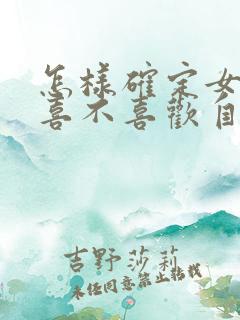 怎樣確定女
喜不喜歡自
吉野莎莉
未任同意禁止轉載